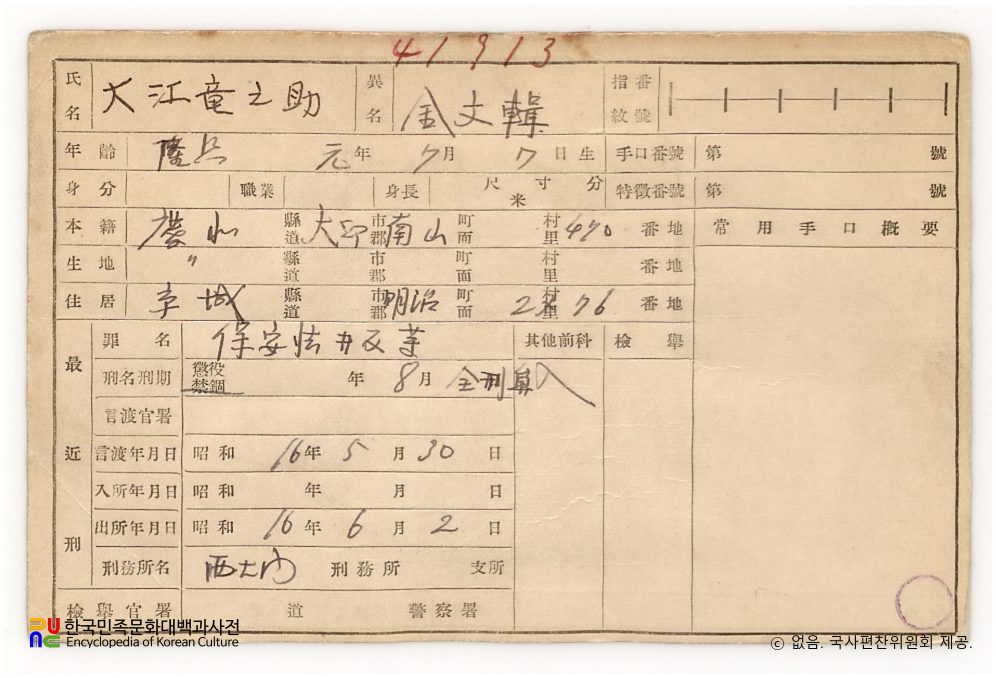 41913
氏名 大江竜之助 異名 金文輯 指紋番號
年齡 隆熙 元年 7月 7日生 手口番號 第 號
身分 職業 身長 尺 寸 分 米 特徵番號 第 號
本籍 慶北 縣道 大邱 市郡 南山 町面 村里 470 番地 常用手口槪要
生地 〃 縣道 市郡 町面 村里 番地
住居 京城 縣道 市郡 明治 町面 村里 2 76 番地
最近刑
罪名 保安法違反等 其他前科 檢擧
刑名刑期 懲役 禁錮 年 8月
言渡官署
言渡年月日 昭和 16年 5月 30日
入所年月日 昭和 年 月 日
出所年月日 昭和 16年 6月 2日
刑務所名 西大門 刑務所 支所
檢擧官署 道 警察署
한국민족문화대백과사전
Encyclopedia of Korean Culture
ⓒ 없음. 국사편찬위원회 제공.